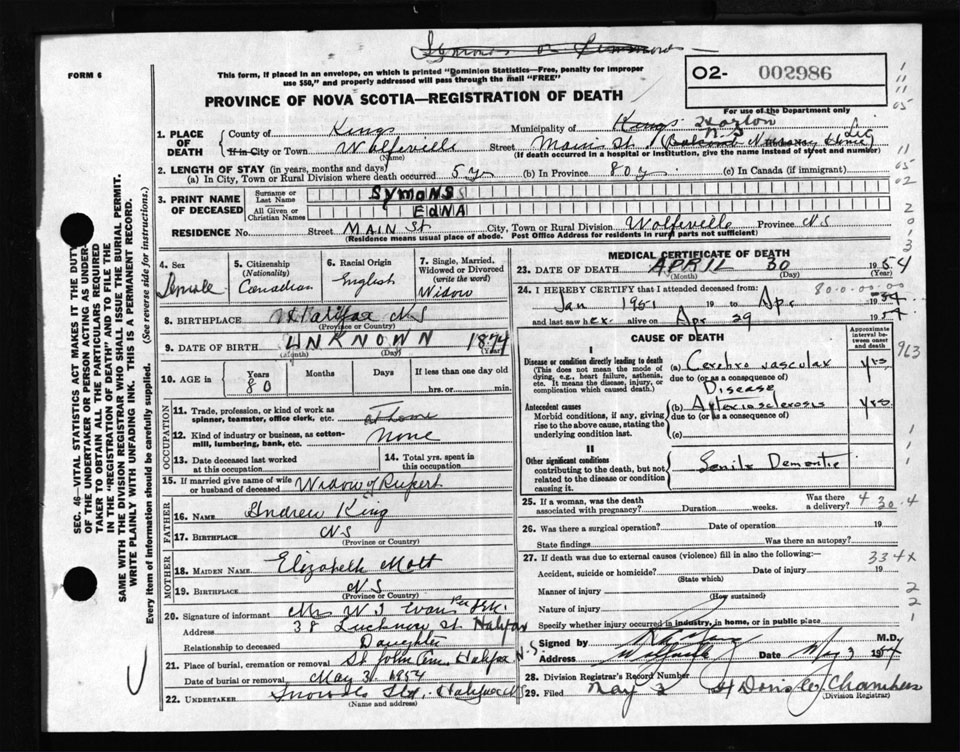 FORM 6
This form, if placed in an envelope, on which is printed "Dominion Statistics—Free, penalty for improper
use $50," and properly addressed will pass through the mail "FREE"
PROVINCE OF NOVA SCOTIA—REGISTRATION OF DEATH
O2- 002986
For use of the Department only
1. PLACE OF DEATH
County of Kings Municipality of Kings Horton
If in City or Town Wolfville Street Main St
(Name) (If death occurred in a hospital or institution, give the name instead of street and number)
2. LENGTH OF STAY (in years, months and days)
(a) In City, Town or Rural Division where death occurred 5 y (b) In Province 80 y (c) In Canada (if immigrant)
3. PRINT NAME OF DECEASED
Surname or Last Name SYMONS
All Given or Christian Names EDNA
RESIDENCE No. Street MAIN St City, Town or Rural Division Wolfville Province NS
(Residence means usual place of abode. Post Office Address for residents in rural parts not sufficient)
4. Sex
Female
5. Citizenship
(Nationality)
Canadian
6. Racial Origin
English
7. Single, Married, Widowed or Divorced
(write the word)
Widow
8. BIRTHPLACE Halifax NS
(Province or Country)
9. DATE OF BIRTH UNKNOWN 1874
(Month) (Day) (Year)
10. AGE in
Years 80 Months Days If less than one day old
hrs. or min.
OCCUPATION
11. Trade, profession, or kind of work as
spinner, teamster, office clerk. etc. at home
12. Kind of industry or business, as cotton-
mill, lumbering, bank, etc. None
13. Date deceased last worked
at this occupation
14. Total yrs. spent in
this occupation
15. If married give name of wife
or husband of deceased Widow of Rupert
FATHER
16. NAME Andrew King
17. BIRTHPLACE NS
(Province or Country)
MOTHER
18. MAIDEN NAME Elizabeth Mott
19. BIRTHPLACE NS
(Province or Country)
20. Signature of informant Mrs W J Evans
Address 38 Lucknow St. Halifax
Relationship to deceased Daughter
21. Place of burial, cremation or removal St John Cem. Halifax N.S.
Date of burial or removal May 3 1954
22. UNDERTAKER Snows Halifax NS
(Name and address)
MEDICAL CERTIFICATE OF DEATH
23. DATE OF DEATH APRIL 30 1954
(Month) (Day) (Year)
24. I HEREBY CERTIFY that I attended deceased from: 80-0-00-00
Jan 1951 19 to Apr 1954
and last saw her alive on Apr 29 1954
CAUSE OF DEATH
Approximate interval between onset and death
963
I
Disease or condition directly leading to death
(This does not mean the mode of
dying, e.g., heart failure, asthenia,
etc. It means the disease, injury, or
complication which caused death.)
(a) Cerebro vascular yrs
due to (or as a consequence of)
Disease
Antecedent causes
Morbid conditions, if any, giving
rise to the above cause, stating the
underlying condition last.
(b) Arteriosclerosis yrs.
due to (or as a consequence of)
(c)
II
Other significant conditions
contributing to the death, but not
related to the disease or condition
causing it.
Senile Dementia
25. If a woman, was the death
associated with pregnancy? Duration weeks. Was there a delivery?
4 30.4
26. Was there a surgical operation? Date of operation 19
State findings Was there an autopsy?
27. If death was due to external causes (violence) fill in also the following:
334x
Accident, suicide or homicide? Date of injury 19
(State which)
Manner of injury
(How sustained)
Nature of injury
Specify whether injury occurred in industry, in home, or in public place
Signed by M.D.
Address Wolfville Date May 3 1954
28. Division Registrar's Record Number
29. Filed May 3 H Doris Chambers
(Division Registrar)
SEC. 46—VITAL STATISTICS ACT MAKES IT THE DUTY
OF THE UNDERTAKER OR PERSON ACTING AS UNDER-
TAKER TO OBTAIN ALL THE PARTICULARS REQUIRED
IN THE "REGISTRATION OF DEATH" AND TO FILE THE
SAME WITH THE DIVISION REGISTRAR WHO SHALL ISSUE THE BURIAL PERMIT.
WRITE PLAINLY WITH UNFADING INK. THIS IS A PERMANENT RECORD.
Every item of information should be carefully supplied. (See reverse side for instructions.)